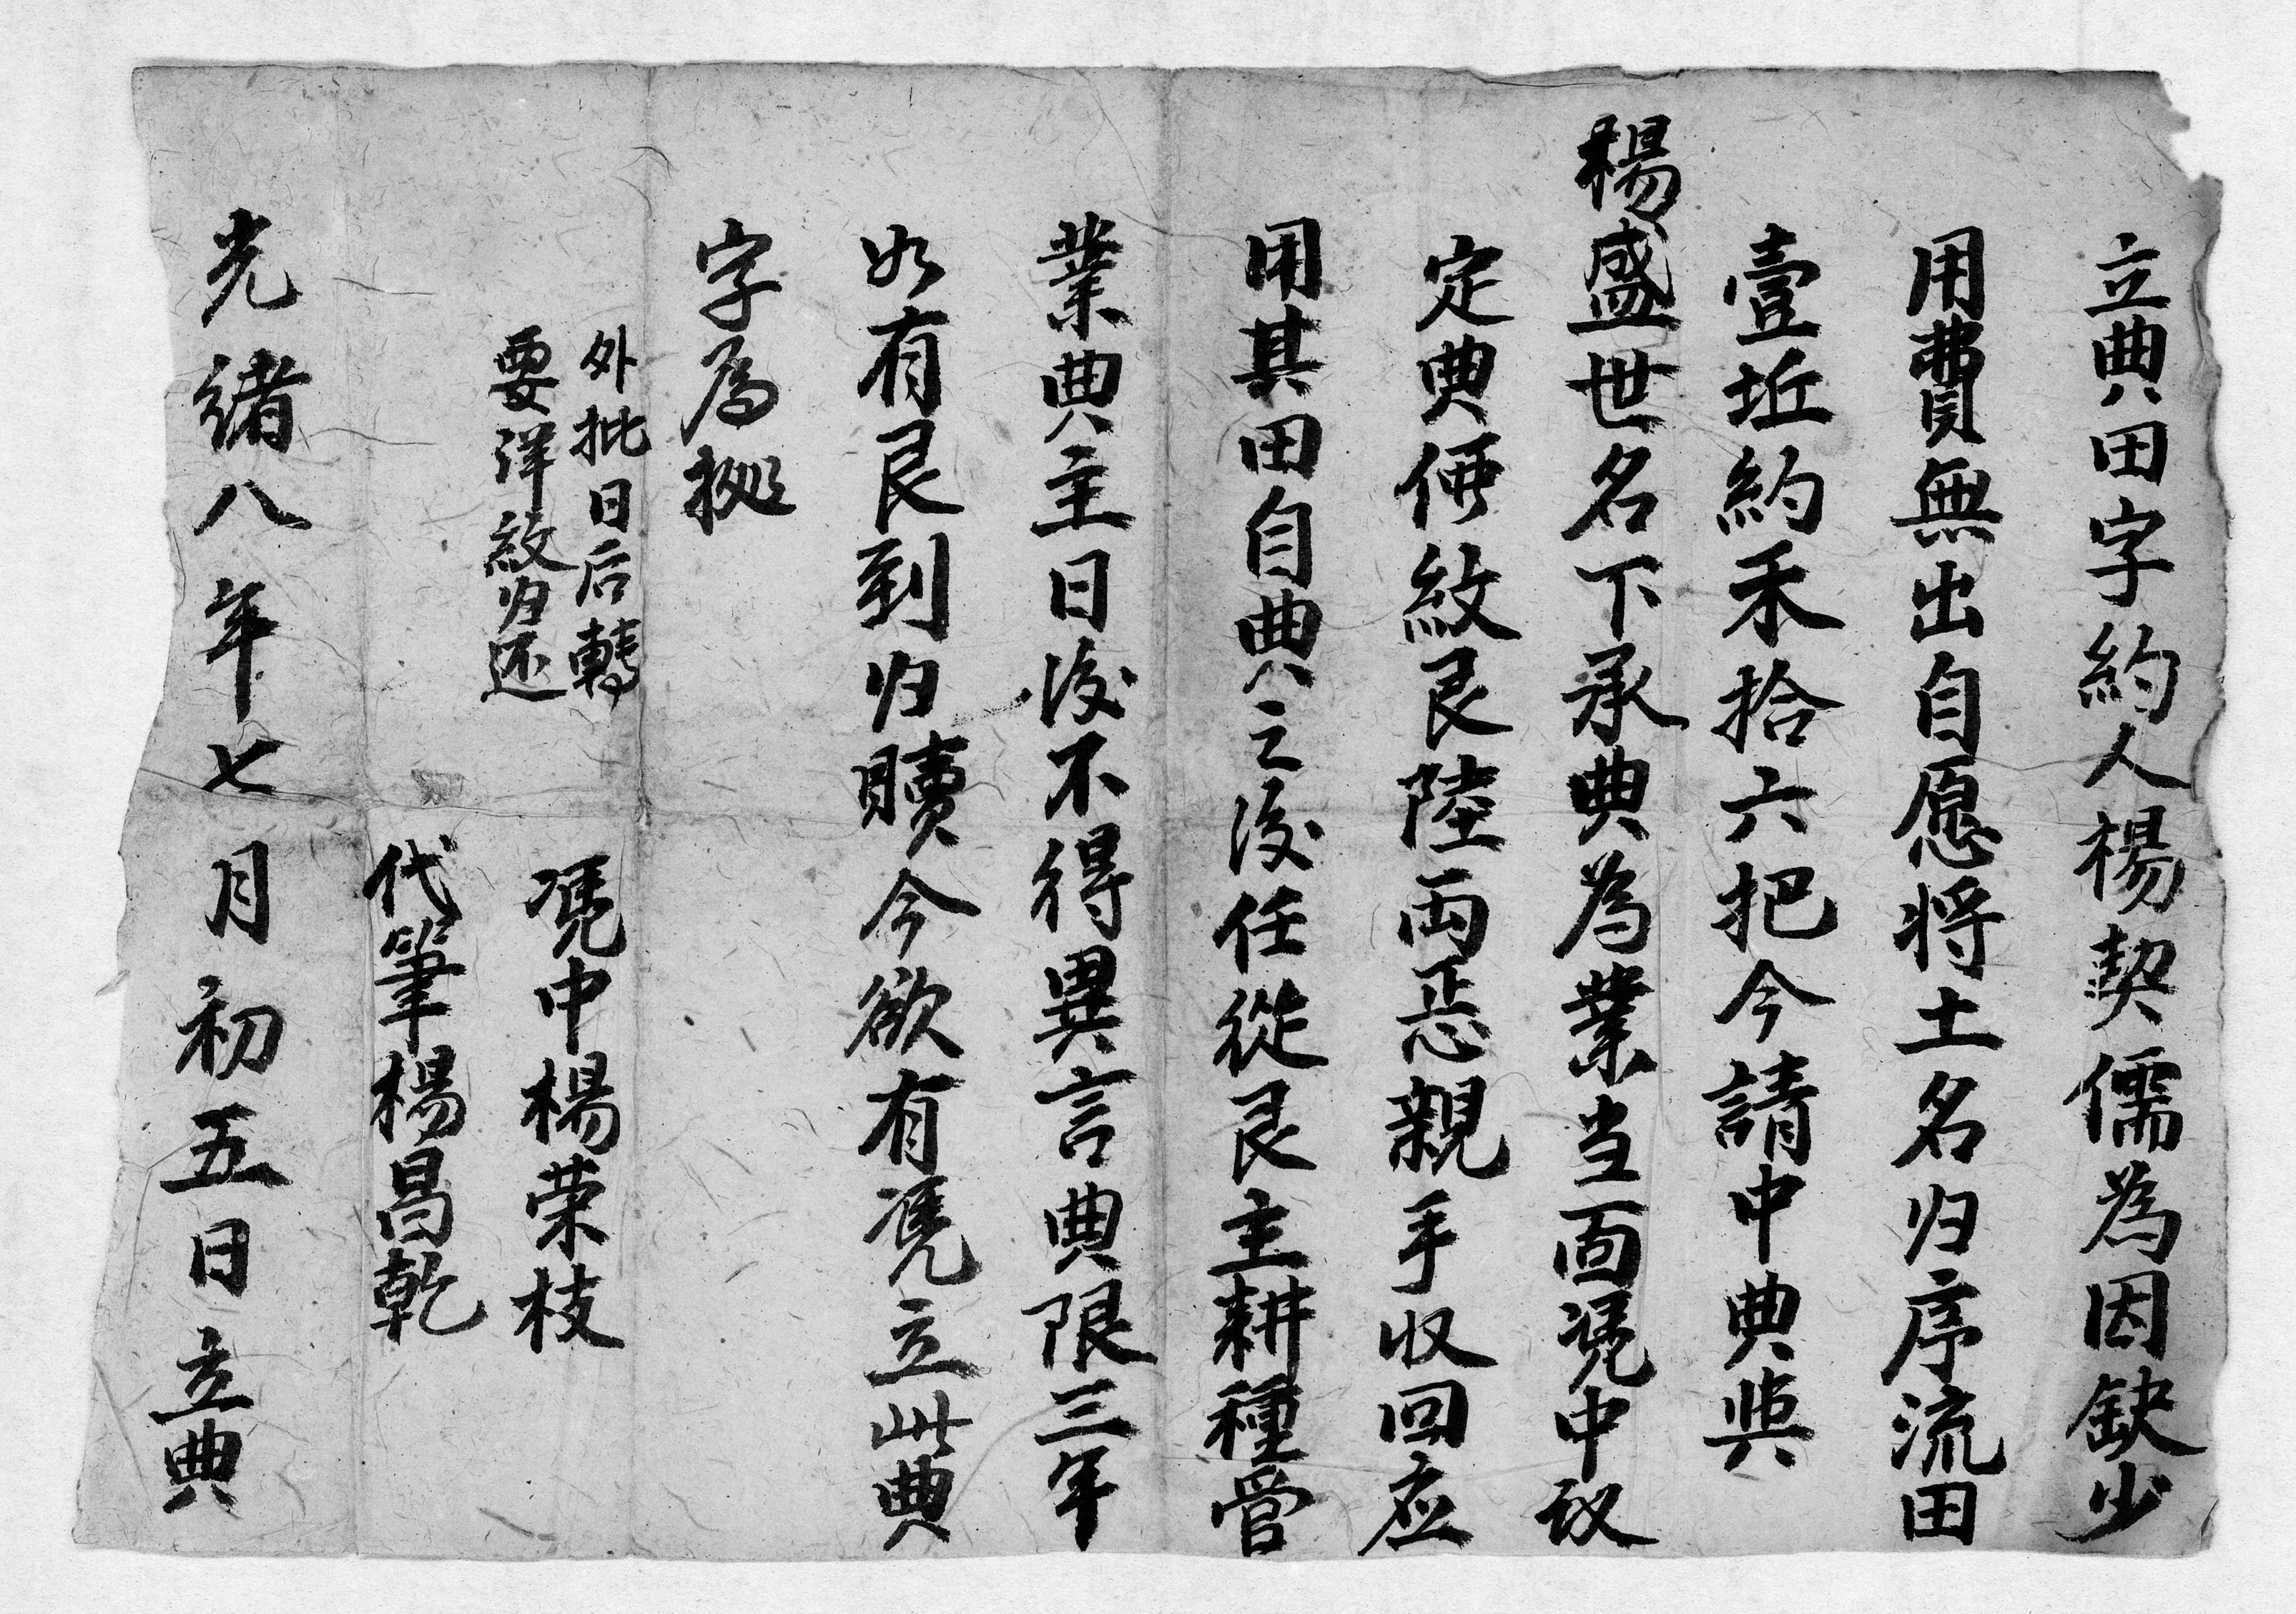 立典田字約人楊契儒為因缺少
用費無出自愿将土名归序流田
壹坵約禾拾六把今請中典與
楊盛世名下承典為業当面凴中议
定典価紋艮陸両正親手収回应
用其田自典之後任從艮主耕種管
業典主日後不得異言典限三年
如有艮到归贖今欲有凴立此典
字為拠
外批日后轉
要洋紋归还
凴中楊荣枝
代筆楊昌乾
光緒八年七月初五日立典